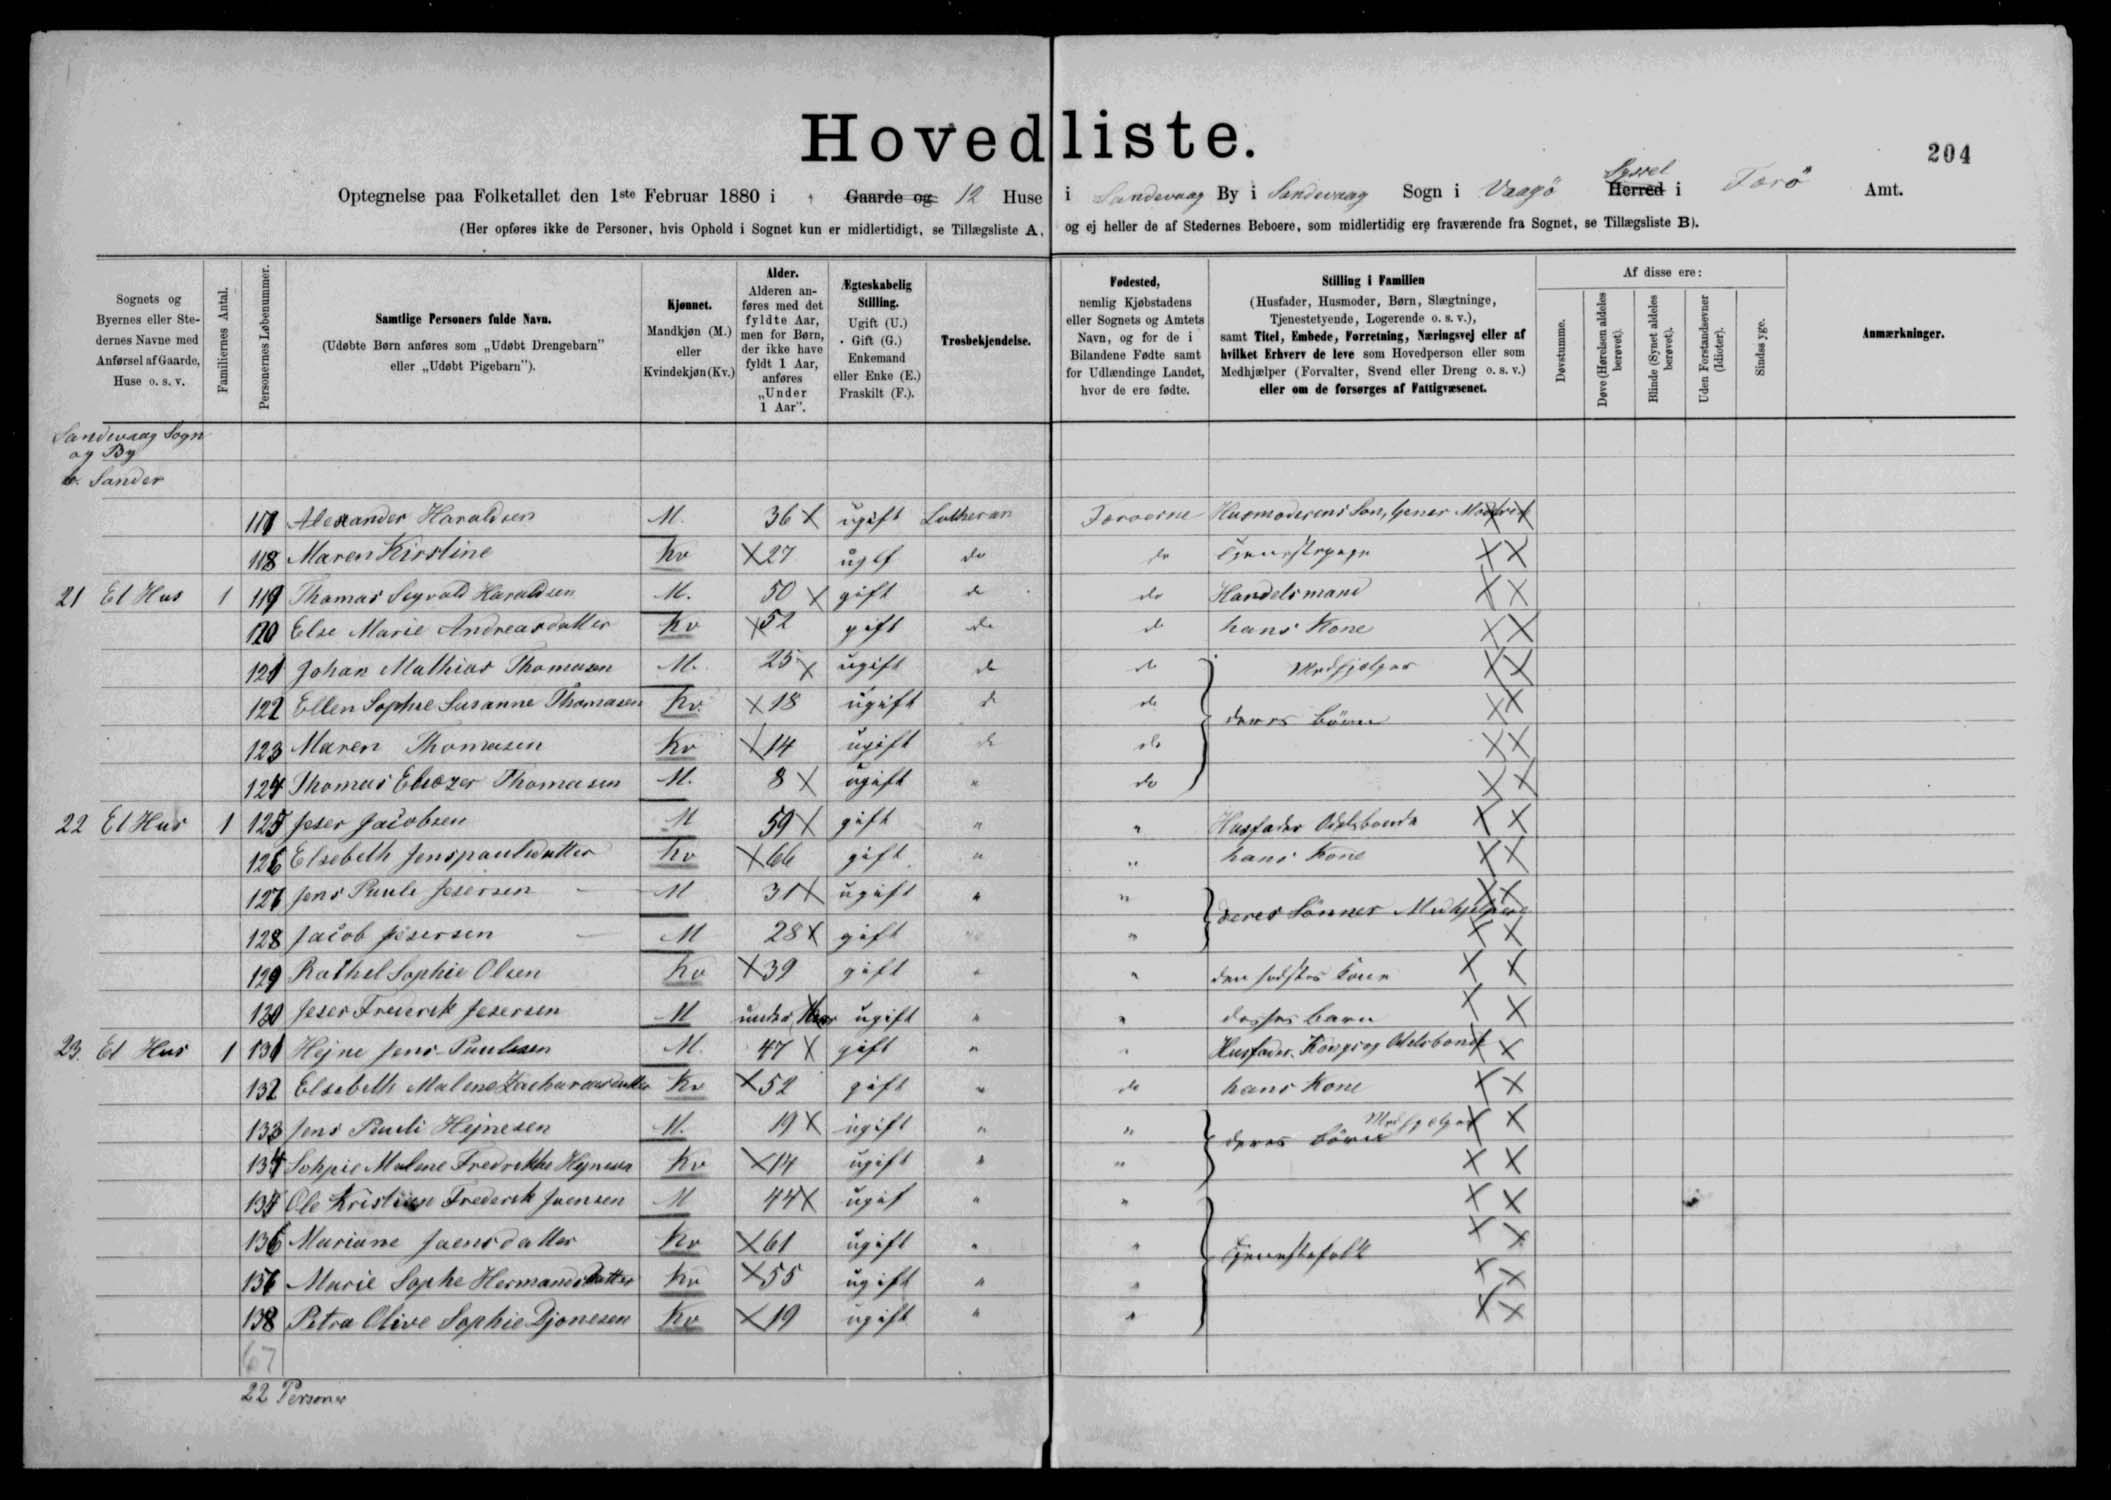 Hovedliste.
204
Optegnelse paa Folketallet den 1ste Februar 1880 i Gaarde og 12 Huse i Sandevaag By i Sandevaag Sogn i Vaagö Herred Syssel i Færö Amt.
(Her opføres ikke de Personer, hvis Ophold i Sognet kun er midlertidigt, se Tillægsliste A, og ej heller de af Stedernes Beboere, som midlertidig ere fraværende fra Sognet, se Tillægsliste B).
Sognets og Byernes eller Stedernes Navne med Anførsel af Gaarde, Huse o. s. v.
Familiernes Antal.
Personernes Løbenummer.
Samtlige Personers fulde Navn. (Udøbte Børn anføres som „Udøbt Drengebarn" eller „Udøbt Pigebarn").
Kjønnet. Mandkjøn (M.) eller Kvindekjøn (Kv.)
Alder. Alderen anføres med det fyldte Aar, men for Børn, der ikke have fyldt 1 Aar, anføres „Under 1 Aar".
Ægteskabelig Stilling. Ugift (U.) Gift (G.) Enkemand eller Enke (E.) Fraskilt (F.).
Trosbekjendelse.
Fødested, nemlig Kjøbstadens eller Sognets og Amtets Navn, og for de i Bilandene Fødte samt for Udlændinge Landet, hvor de ere fødte.
Stilling i Familien (Husfader, Husmoder, Børn, Slægtninge, Tjenestetyende, Logerende o. s. v.), samt Titel, Embede, Forretning, Næringsvej eller af hvilket Erhverv de leve som Hovedperson eller som Medhjælper (Forvalter, Svend eller Dreng o. s. v.) eller om de forsørges af Fattigvæsenet.
Af disse ere:
Døvstumme.
Døve (Hørelsen aldeles berøvet).
Blinde (Synet aldeles berøvet).
Uden Forstandsevner (Idioter).
Sindssyge.
Anmærkninger.
Sandevaag Sogn
og By
Sander
117 Alexander Haraldsen M. 36 X ugift Lutheran Færoerne Husmoderens Søn, X X
118 Maren Kirstine Kv X 27 ugif do do Tjenestepige X X
21 Et Hus 1 119 Thomas Sigvald Haraldsen M. 50 X gift do do Handelsmand X X
120 Else Marie Andreasdatter Kv X 52 gift do do hans Kone X X
121 Johan Mathias Thomasen M. 25 X ugift do do Medhjelper X X
122 Ellen Sophie Susanne Thomasen Kv. X 18 ugift do do deres Börn X X
123 Maren Thomasen Kv X 14 ugift do do X X
124 Thomas Eliezer Thomasen M. 8 X ugift " do X X
22 Et Hus 1 125 Jeser Jacobsen M 59 X gift " " Husfader Odelsbonde X X
126 Elsebeth Jenspaulsdatter Kv X 66 gift " " hans Kone X X
127 Jens Pauli Jesersen M 31 X ugift " " X X
deres Sönner Medhjelpere
128 Jacob Jesersen M 28 X gift " X X
129 Rachel Sophie Olsen Kv X 39 gift " " den sidstes Kone X X
130 Jeser Frederik Jesersen M under 1 Aar ugift " " deres Barn X X
23. Et Hus 1 131 Hejne Jens Paulesen M. 47 X gift " " Husfader. Kongs og Odelsbonde X X
132 Elsebeth Malene Zachariasdatter Kv X 52 gift " do hans Kone X X
133 Jens Pauli Hejnesen M. 19 X ugift " " deres Börn Medhjelper X X
134 Sophie Malene Fredrikke Hejnesen Kv X 14 ugift " " X X
135 Ole Kristian Frederik Joensen M 44 X ugif " " X X
136 Mariane Joensdatter Kv X 61 ugift " " X X
Tjenestefolk
137 Marie Sophe Hermansdatter Kv X 55 ugift " " X X
138 Petra Olive Sophie Djonesen Kv X 19 ugift " " X X
67
22 Personer